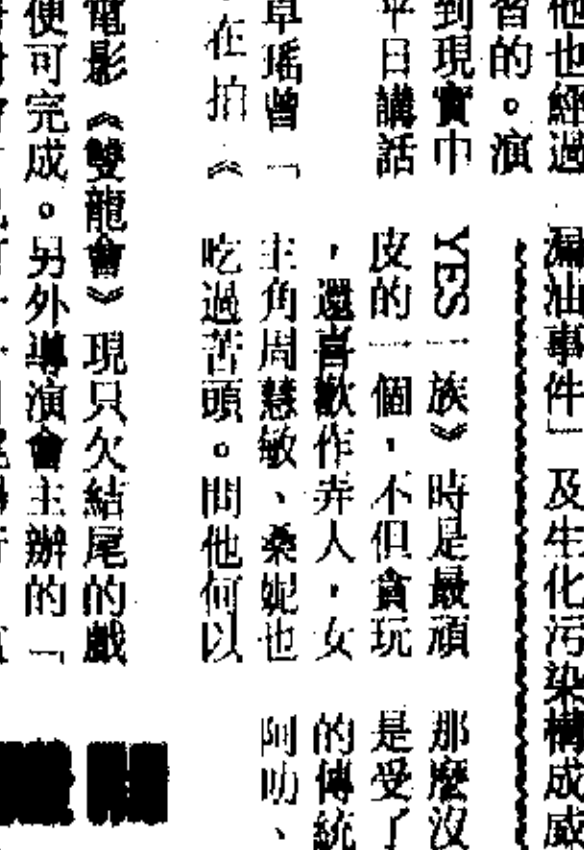 他也經過
的。演
到現實中
平日講話
瑤曾「
在拍《
漏油事件」及生化污染構成威
YES一族》時是最頑
皮的一個,不但貪玩
,還喜歡作弄人,女
主角周慧敏、桑妮也
吃過苦頭。問他何以
那麼沒
是受了
的傳統
阿叻、
電影《雙龍會》現只欠結尾的戲
便可完成。另外導演會主辦的「